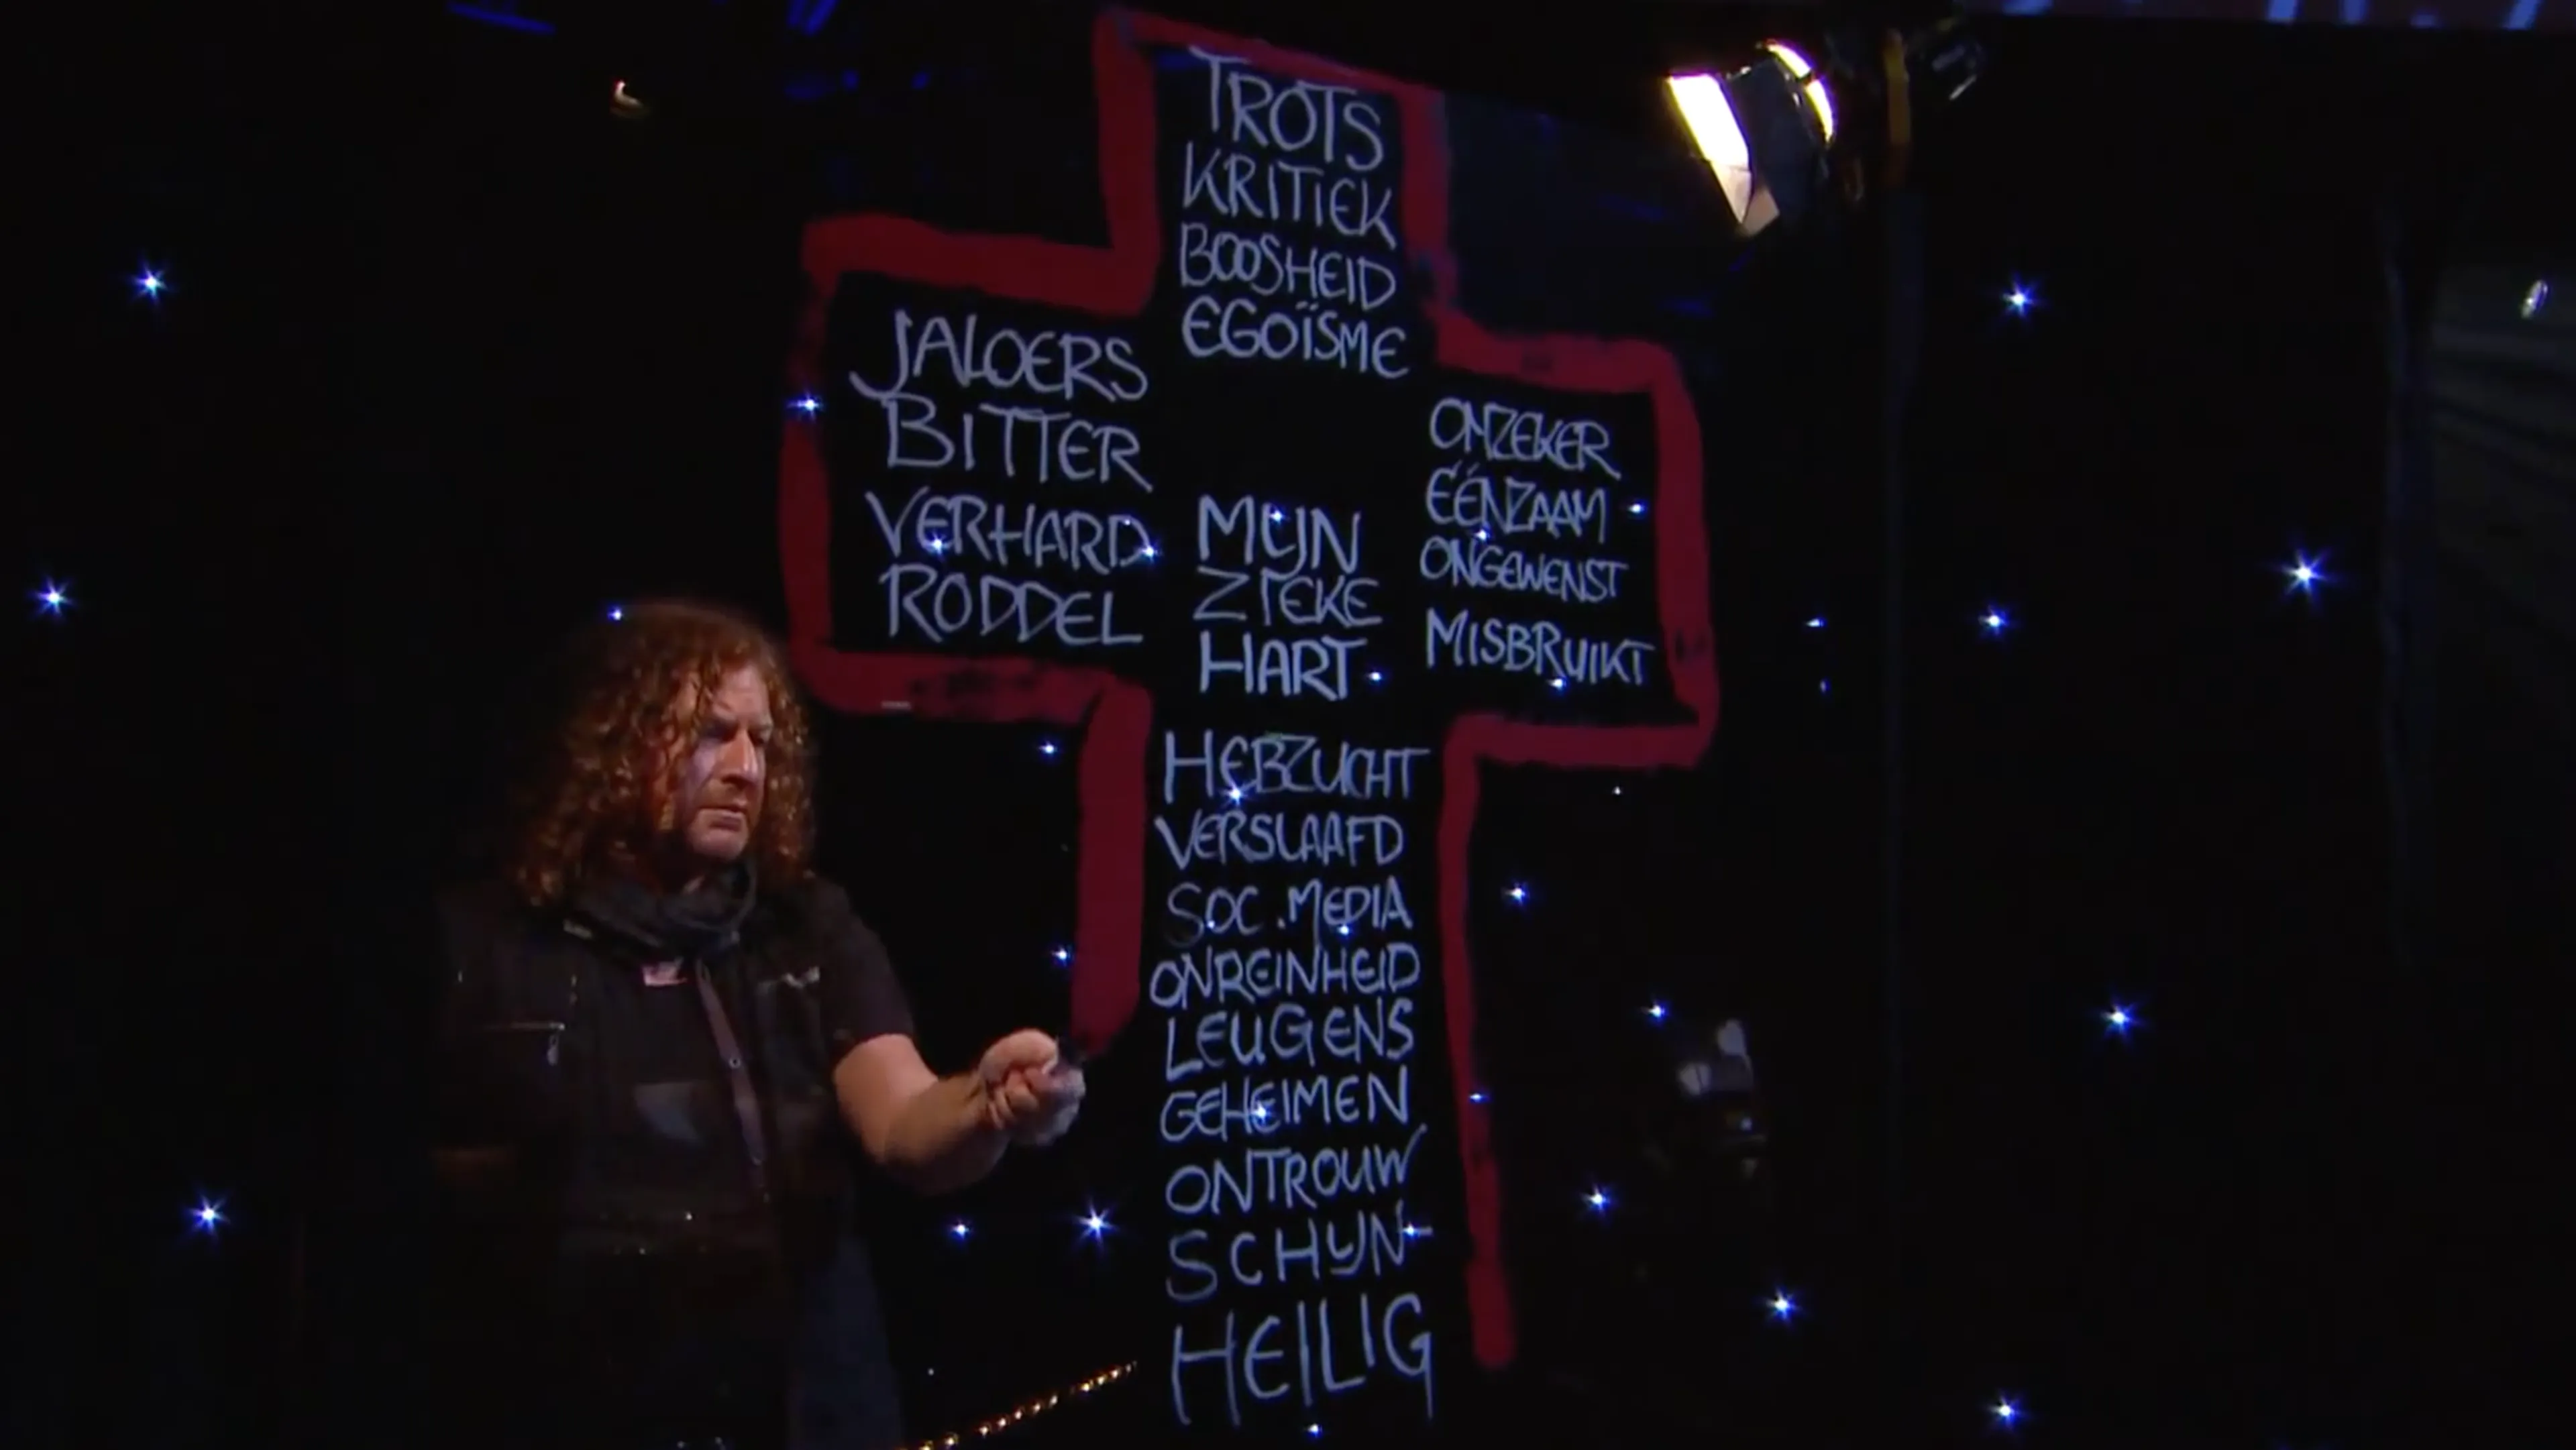 TROTS
KRITIEK
BOOSHEID
EGOÏSME
JALOERS
BITTER
VERHARD
RODDEL
MIJN
ZIEKE
HART
ONZEKER
ÉÉNZAAM
ONGEWENST
MISBRUIKT
HEBZUCHT
VERSLAAFD
SOC.MEDIA
ONREINHEID
LEUGENS
GEHEIMEN
ONTROUW
SCHIJN-
HEILIG